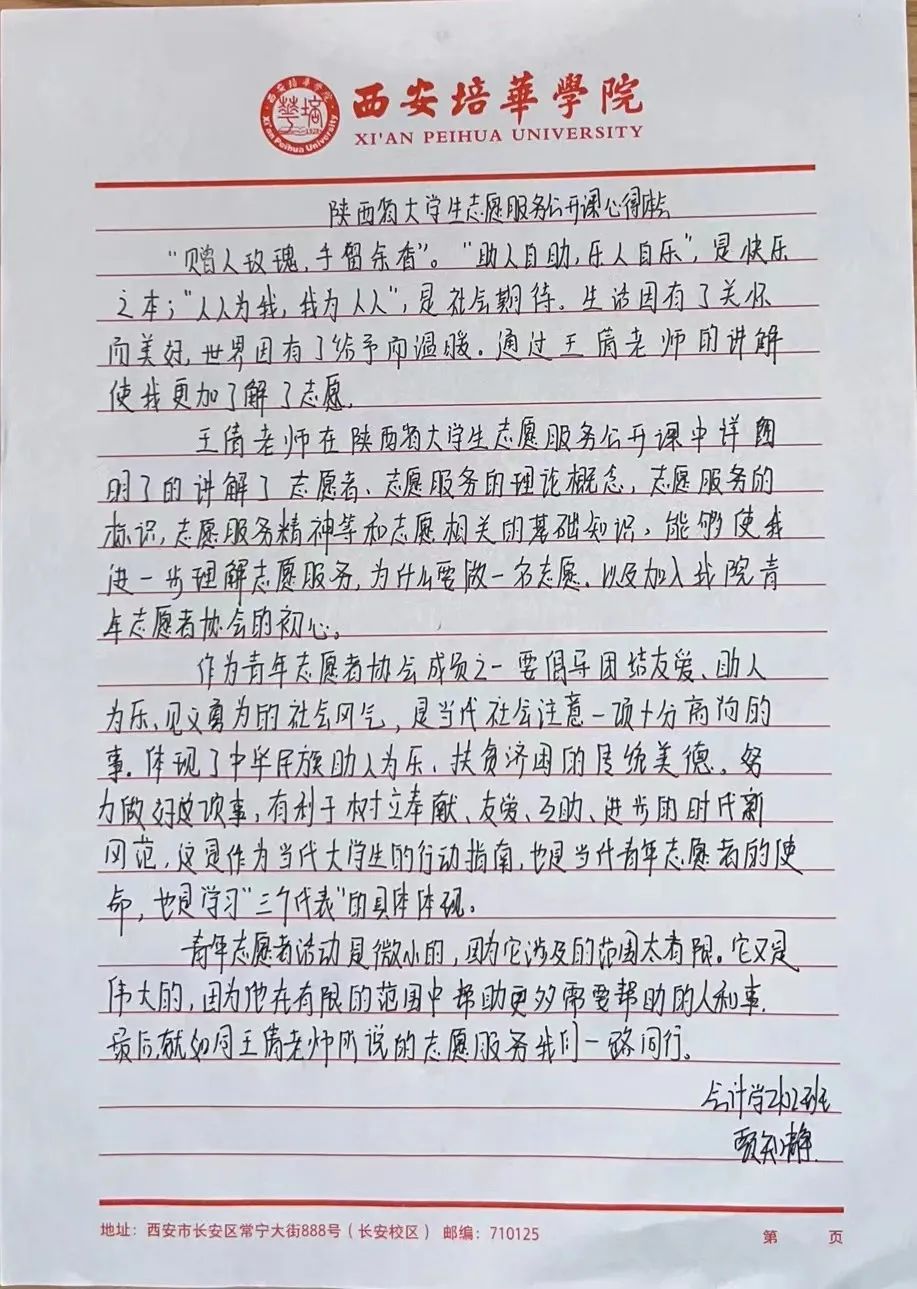 西安培華學院
XI'AN PEIHUA UNIVERSITY
西安培華學院
Xi'an Peihua University
1928
陕西省大学生志愿服务公开课心得体会
“赠人玫瑰,手留余香”。“助人自助,乐人自乐”,是快乐
之本;“人人为我,我为人人”,是社会期待。生活因有了关怀
而美好,世界因有了给予而温暖。通过王倩老师的讲解
使我更加了解了志愿。
王倩老师在陕西省大学生志愿服务公开课中详图
明了的讲解了志愿者、志愿服务的理论概念,志愿服务的
标识,志愿服务精神等和志愿相关的基础知识,能够使我
进一步理解志愿服务,为什么要做一名志愿、以及加入我院青
年志愿者协会的初心。
作为青年志愿者协会成员之一要倡导团结友爱、助人
为乐、见义勇为的社会风气,是当代社会注意一项十分高尚的
事。体现了中华民族助人为乐、扶贫济困的传统美德。努
力做好这项事,有利于树立奉献、友爱、互助、进步的时代新
风范,这是作为当代大学生的行动指南,也是当代青年志愿者的使
命,也是学习“三个代表”的具体体现。
青年志愿者活动是微小的,因为它涉及的范围太有限。它又是
伟大的,因为他在有限的范围中帮助更多需要帮助的人和事.
最后,就如同王倩老师所说的志愿服务我们一路同行。
会计学班
静
地址:西安市长安区常宁大街888号(长安校区) 邮编:710125
第 页